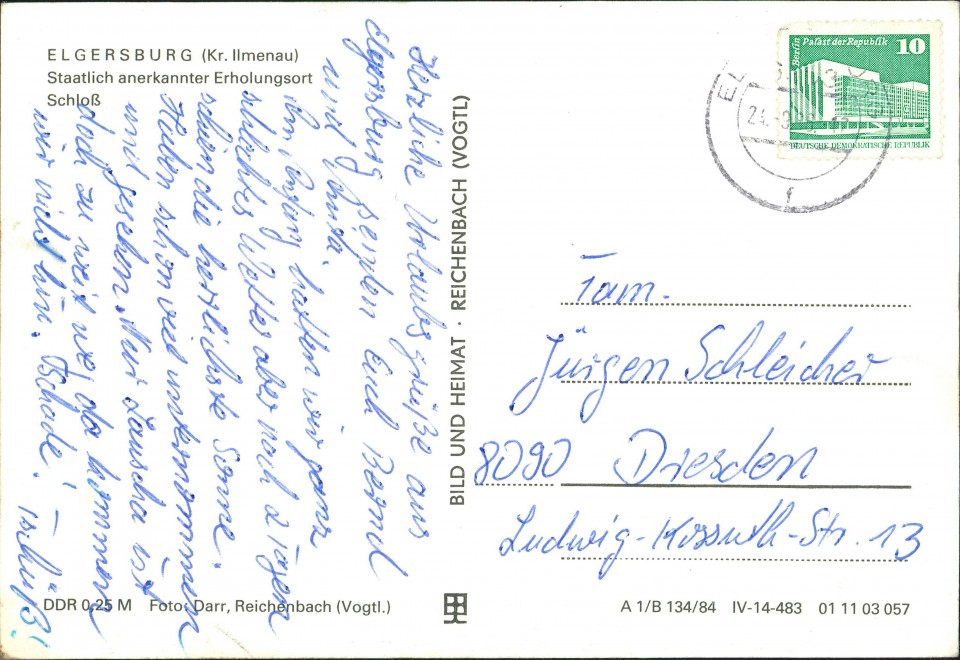 ELGERSBURG (Kr. Ilmenau)
Staatlich anerkannter Erholungsort
Schloß
Herzliche Urlaubsgrüße aus
Elgersburg senden Euch Bernd
und
Am Anfang hatten wir ganz
schlechtes Wetter aber nach 2 Tagen
schien die herrlichste Sonne.
Haben schon viel unternommen
und gesehen. Nur Lauscha ist
doch zu weit weg, da kommen
wir nicht hin. Schade! –
Tschüß!
BILD UND HEIMAT · REICHENBACH (VOGTL)
Berlin
Palast der Republik 10
DEUTSCHE DEMOKRATISCHE REPUBLIK
Fam.
Jürgen Schleicher
8090 Dresden
Ludwig-Kossuth-Str. 13
DDR 0,25 M Foto: Darr, Reichenbach (Vogtl.)
A 1/B 134/84 IV-14-483 01 11 03 057